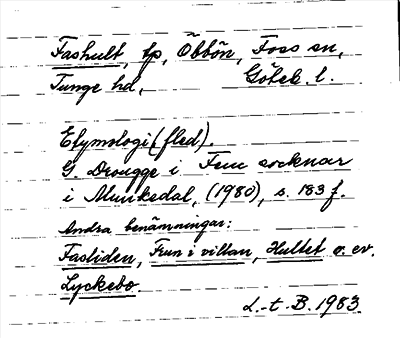 Fashult, tp, Öbbön, Foss sn,
Tunge hd, Göteb. l.
Etymologi (fled).
G Drougge i Fem socknar
i Munkedal, (1980), s. 183 f.
Andra benämningar:
Fasliden, Frun i villan, Hultet o. ev.
Lyckebo.
L.-t. B. 1983